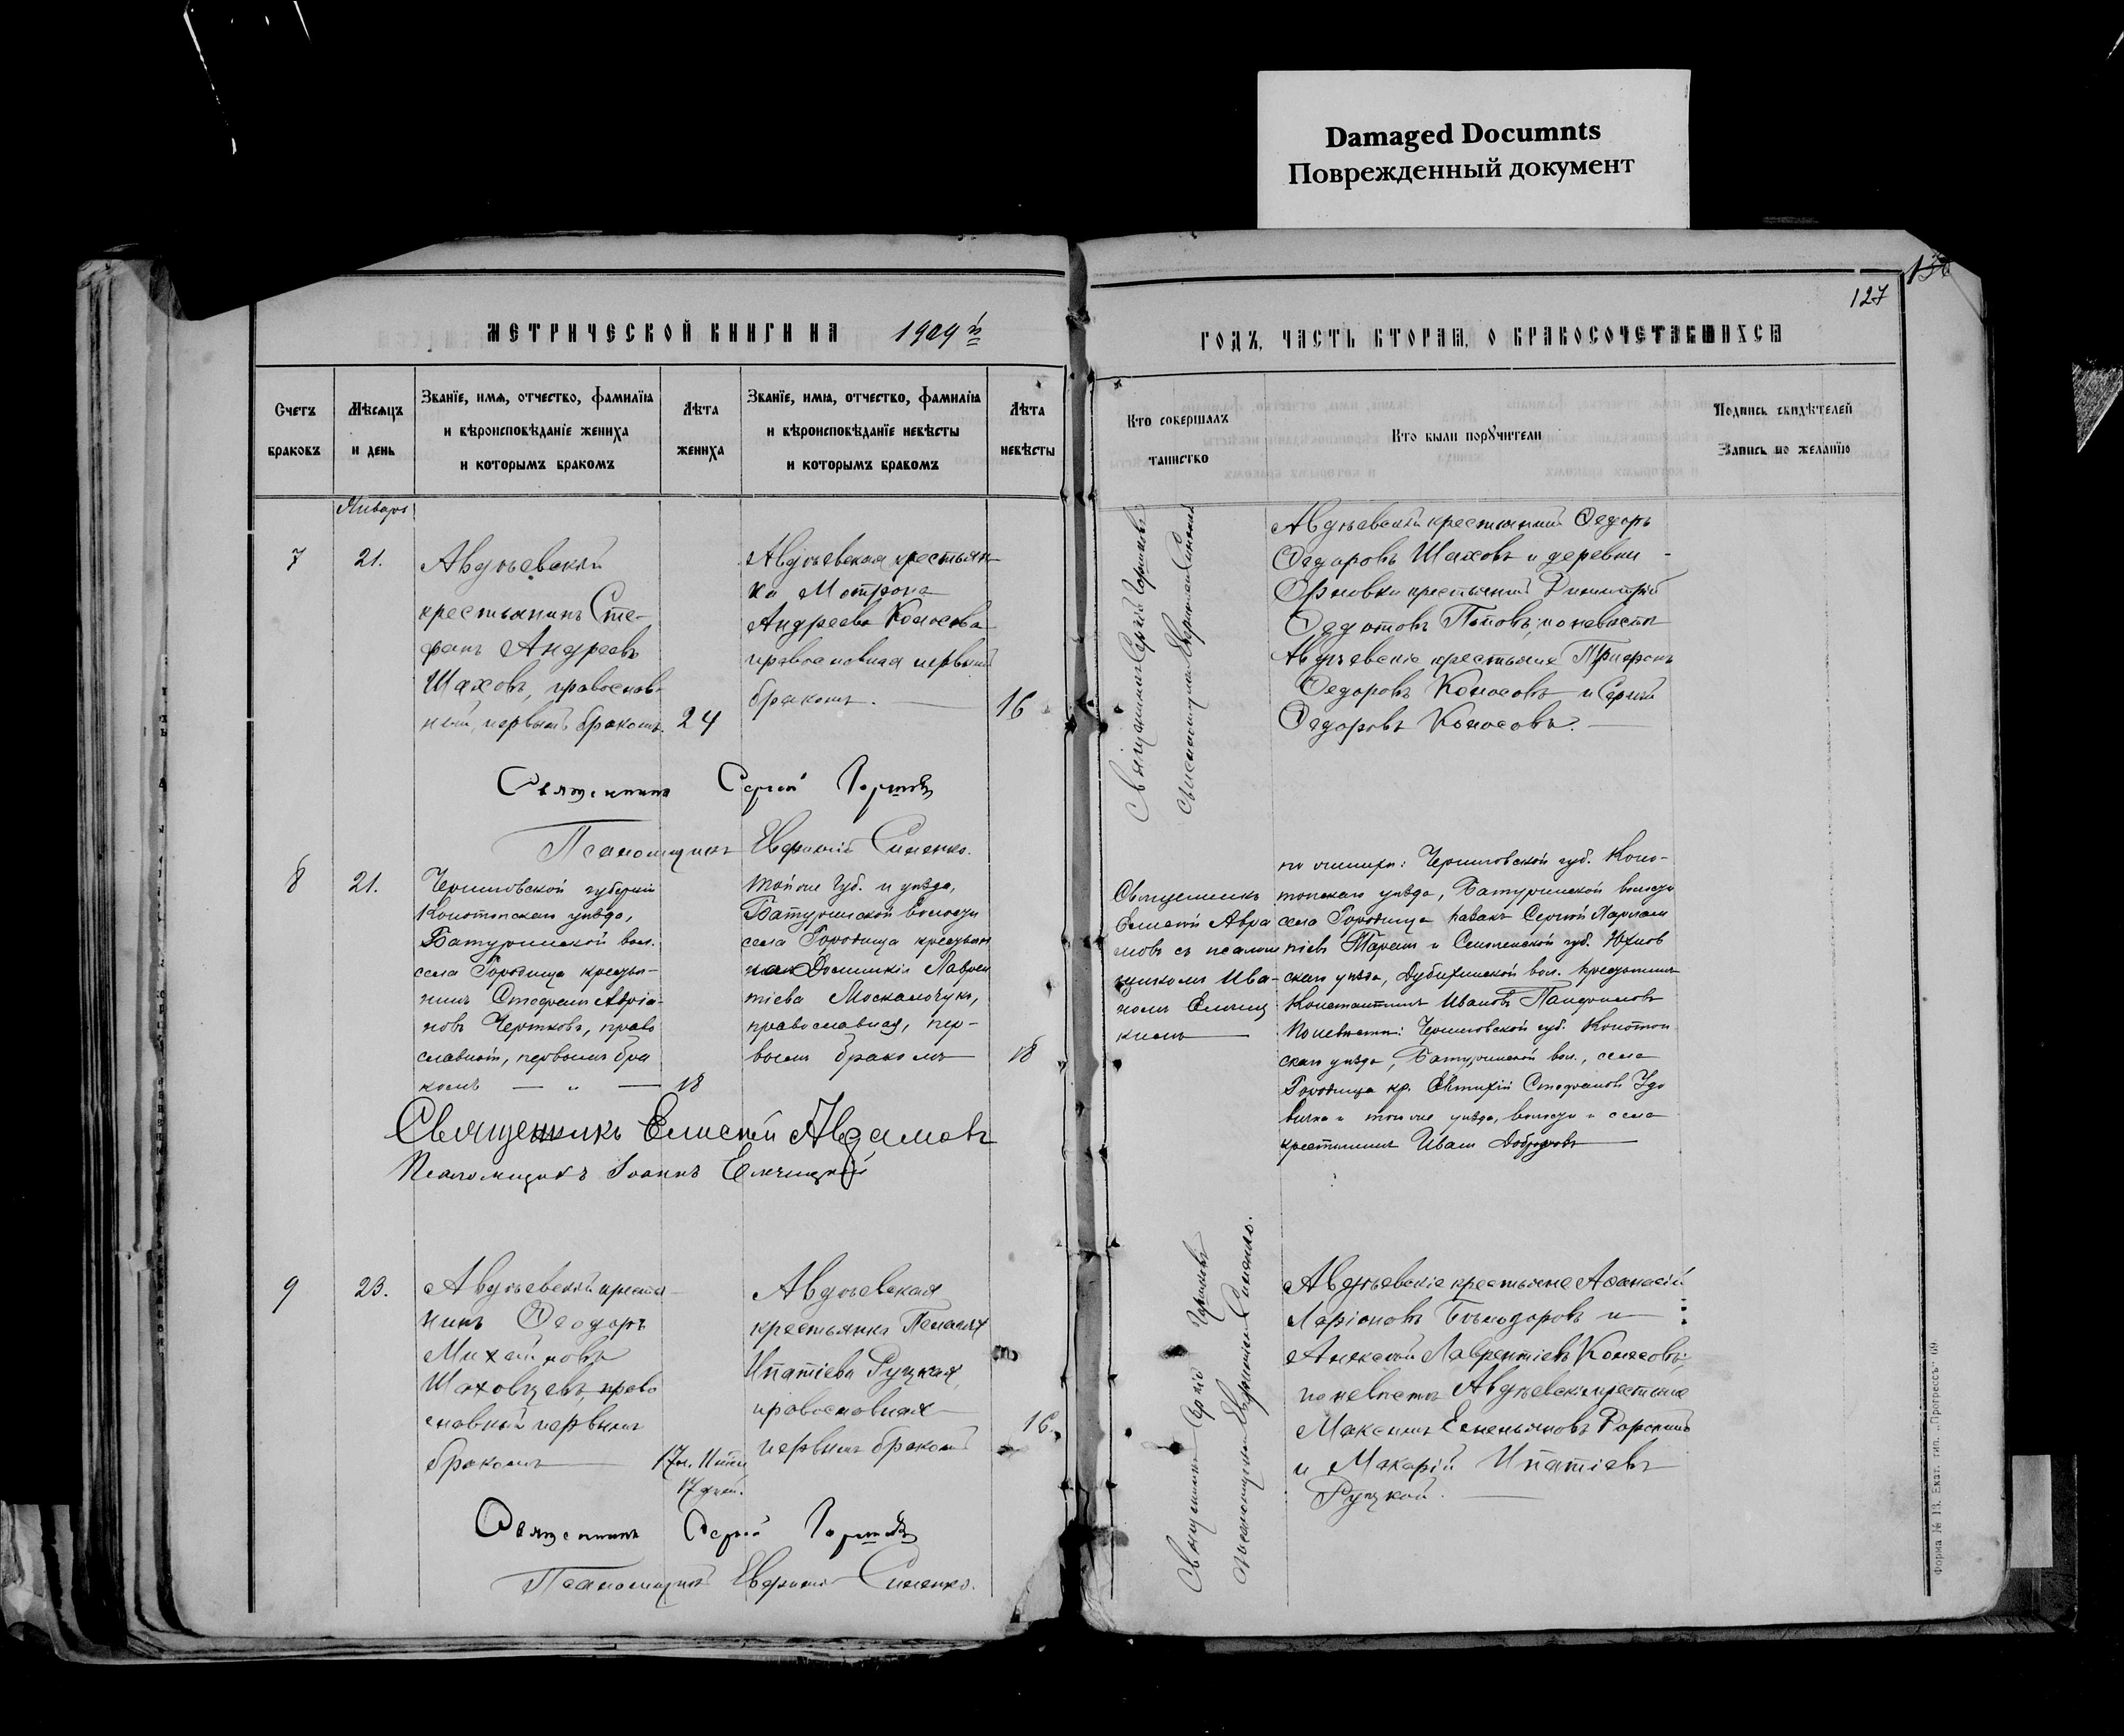 Damaged Documnts
Поврежденный документ
127
МЕТРИЧЕСКОЙ КНИГИ НА 1909 й
ГОДЪ, ЧАСТЬ ВТОРАЯ, О БРАКОСОЧЕТАВШИХСЯ
Счетъ браковъ
Мѣсяцъ и день
Званїе, имя, отчество, фамилїя
и вѣроисповѣданїе жениха
и которымъ бракомъ
Лѣта жениха
Званїе, имя, отчество, фамилїя
и вѣроисповѣданїе невѣсты
и которымъ бракомъ
Лѣта невѣсты
Кто совершалъ таинство
Кто были порꙋчители
Подпись свидѣтелей
Запись по желанїю
Январь
7
21.
Авдѣевскій
крестьянинъ Сте-
фанъ Андреевъ
Шаховъ, православ-
ный, первымъ бракомъ.
24
Авдѣевская крестьян-
ка Матрона
Андреева Колосова
православная первымъ
бракомъ.
16
Священникъ Сергій Горяиновъ
Псаломщикъ Евфимій Сименко
Авдѣевскій крестьянинъ Ѳедоръ
Ѳедоровъ Шаховъ и деревни
Орловки крестьянинъ Димитрій
Ѳедотовъ Поповъ; по невѣстѣ
Авдѣевскіе крестьяне Трифонъ
Ѳедоровъ Колосовъ и Сергій
Ѳедоровъ Колосовъ.
Священникъ Сергій
Псаломщикъ Евфимій Сименко.
8
21.
Черниговской губерніи
Конотопскаго уѣзда,
Батуринской вол.
села Городища крестья-
нинъ Стефанъ Адріа-
новъ Чертковъ, право
славный, первымъ бра
комъ — „ —
18
Той же губ. и уѣзда,
Батуринской волости
села Городища крестьян
ка Домникія Лаврен
тіева Москальчукъ,
православная, пер-
вымъ бракомъ
18
Священникъ
Елисей Авра
мовъ съ псалом
щикомъ Ива-
номъ Елчиц
кимъ
по женихѣ: Черниговской губ. Коно-
топскаго уѣзда, Батуринской волости
села Городища казакъ Сергій Харлам
піевъ и Смоленской губ. Юхнов
скаго уѣзда, вол. крестьянинъ
Константинъ Ивановъ
По невѣстѣ: Черниговской губ. Конотоп
скаго уѣзда, Батуринской вол., села
Городища кр. Евтихій Стефановъ Удо
виченко и той же уѣзда, волости и села
крестьянинъ Иванъ
Священникъ Елисей Авдамовъ
Псаломщикъ Іоаннъ Елчицкій
9
23.
Авдѣевскій крестья-
нинъ Ѳеодоръ
Михайловъ
Шаховцевъ, право
славный первымъ
бракомъ
17 л.
17 дней.
Авдѣевская
крестьянка Пелагія
Ипатіева Руцкая,
православная
первымъ бракомъ
16.
Авдѣевскіе крестьяне Аѳанасій
Ларіоновъ и
Алексѣй Лаврентіевъ Колосовъ;
по невѣстѣ Авдѣевскіе крестьяне
Максимъ Емельяновъ
и Макарій Ипатіевъ
Руцкой.
Священникъ Сергій
Псаломщикъ Евфимій Сименко.
Священникъ Сергій Горяиновъ
Псаломщикъ Евфимій Сименко.
Форма № 13. Екат. тип. „Прогрессъ“ 09